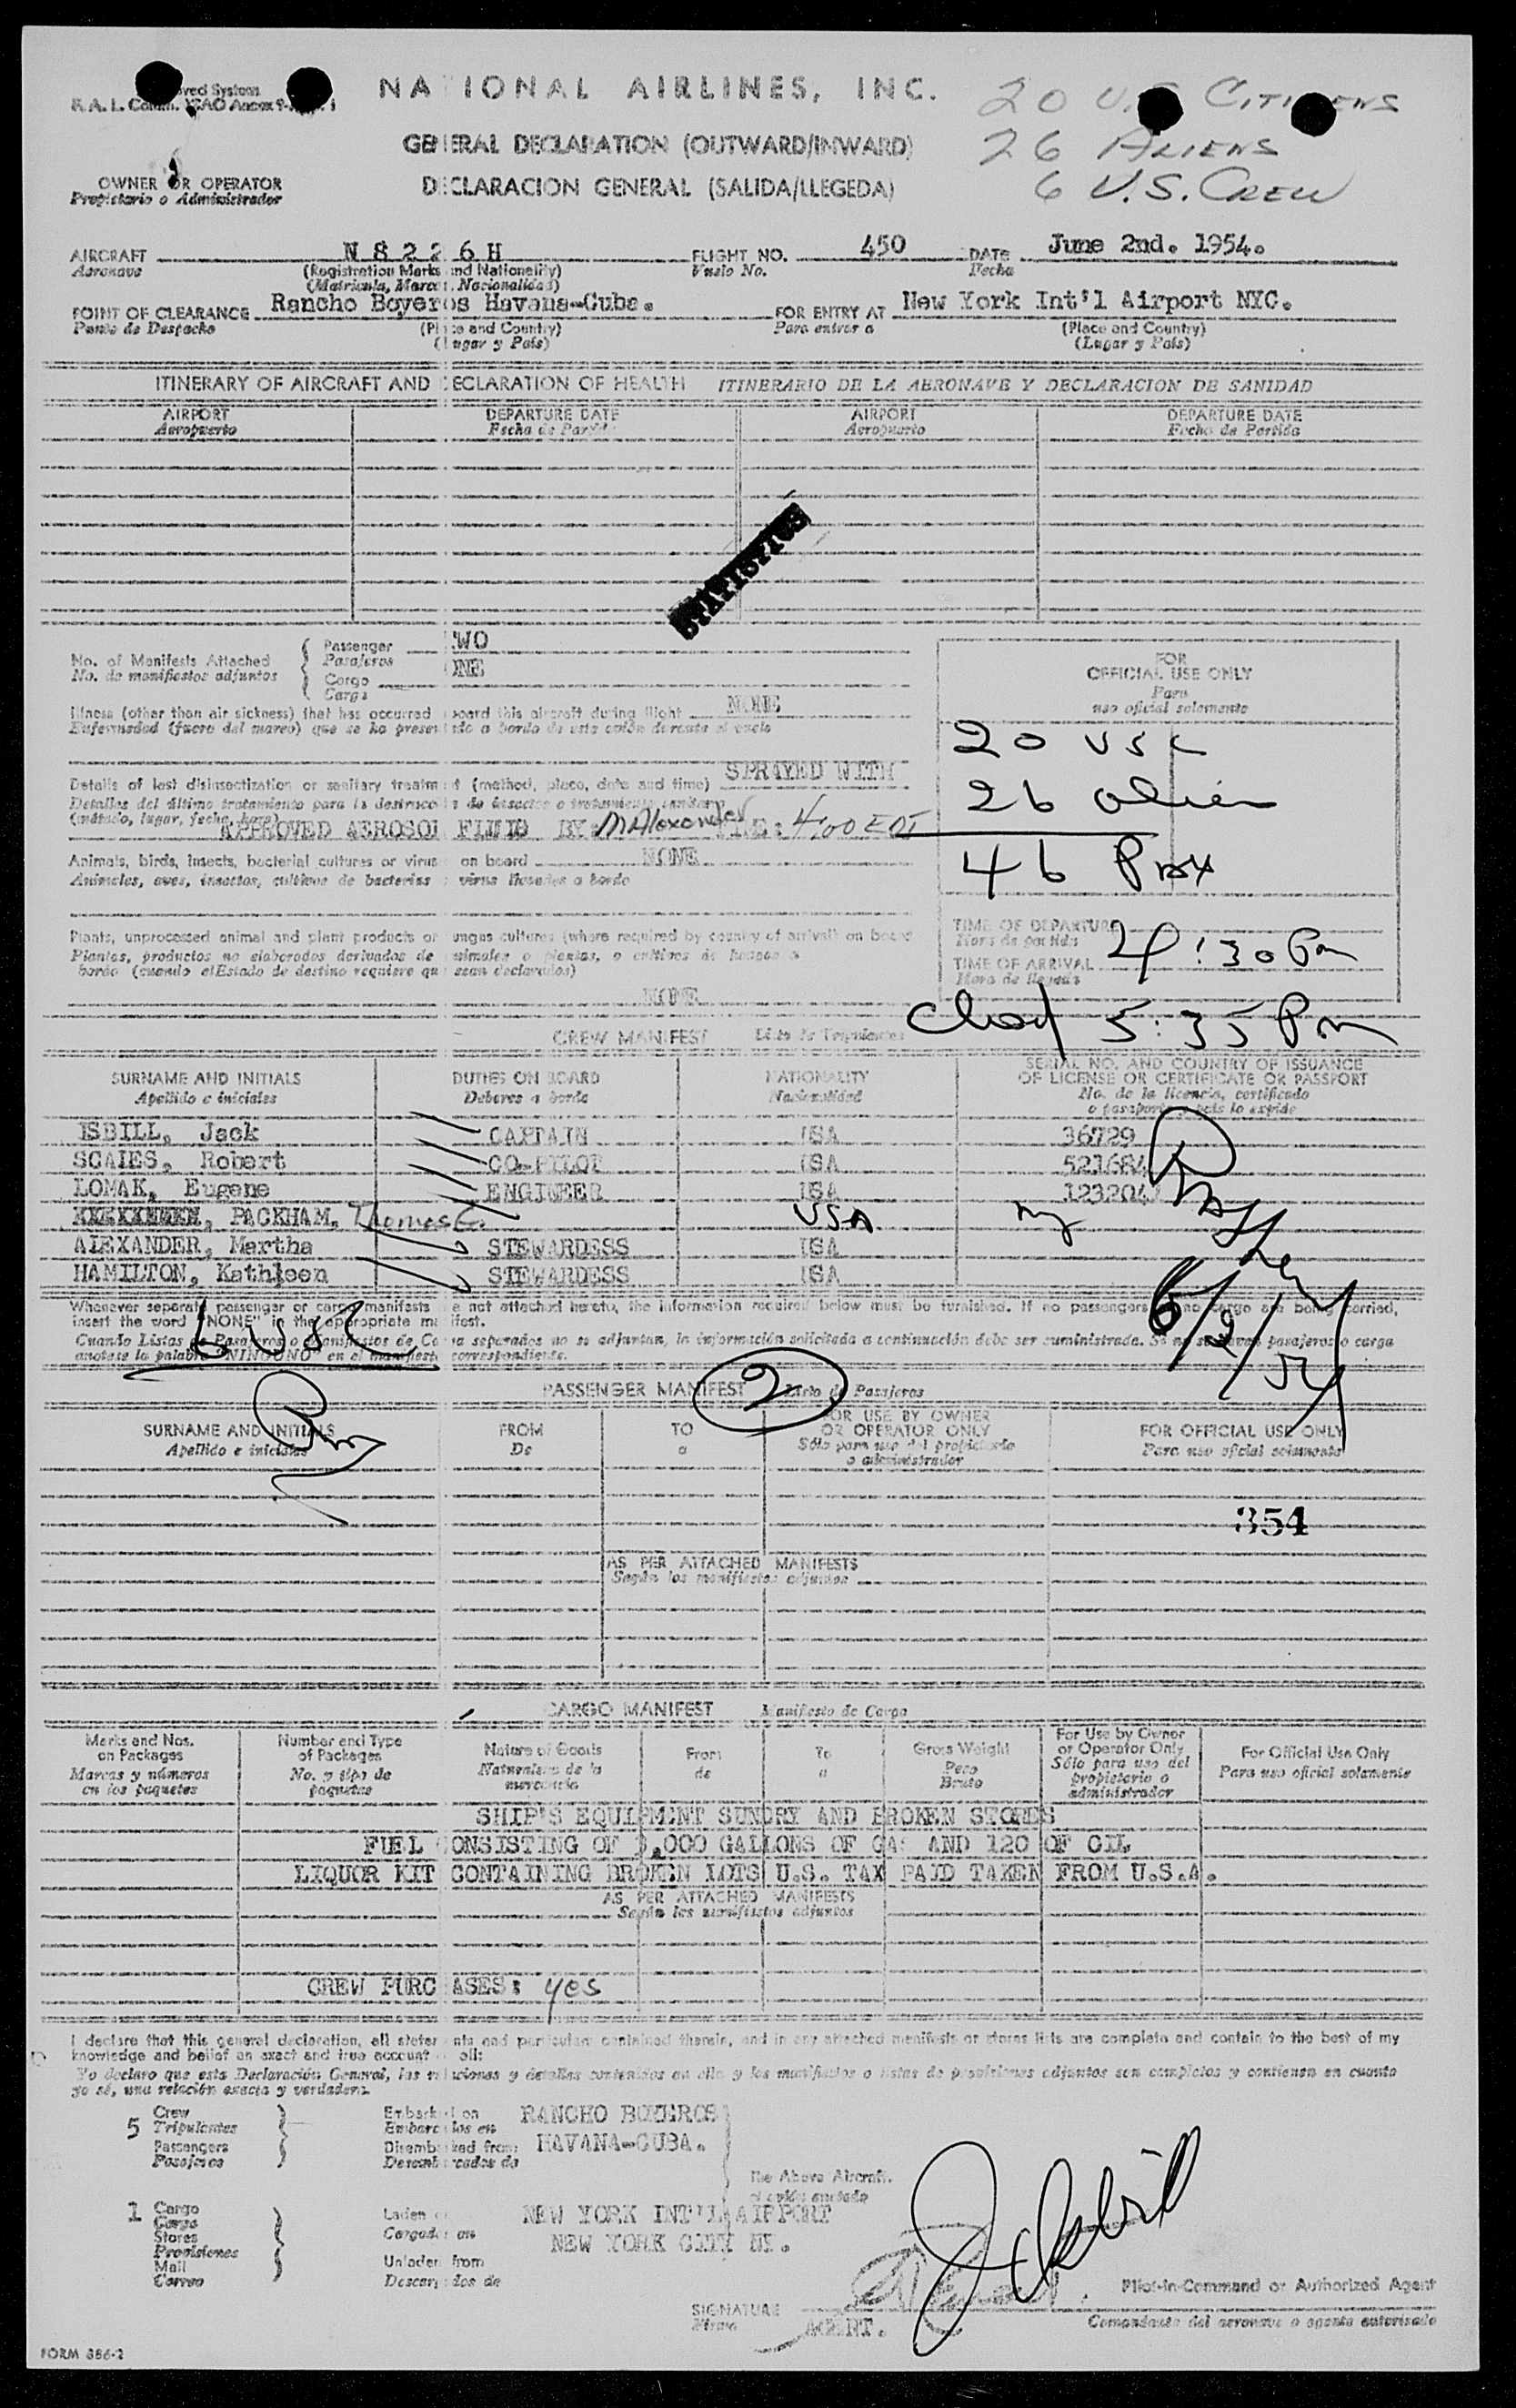 NATIONAL AIRLINES, INC.
20 U.S. CITIZENS
26 ALIENS
6 U.S. CREW
GENERAL DECLARATION (OUTWARD/INWARD)
DECLARACION GENERAL (SALIDA/LLEGEDA)
OWNER OR OPERATOR
Propietario o Administrador
AIRCRAFT N 8 2 2 6 H FLIGHT NO. 450 DATE June 2nd. 1954.
Aeronave (Registration Marks and Nationality) Vuelo No. Fecha
(Matricula, Marcas, Nacionalidad)
POINT OF CLEARANCE Rancho Boyeros Havana-Cuba. FOR ENTRY AT New York Int'l Airport NYC.
Punto de Despacho (Place and Country) Para entrar a (Place and Country)
(Lugar y Pais) (Lugar y Pais)
ITINERARY OF AIRCRAFT AND DECLARATION OF HEALTH ITINERARIO DE LA AERONAVE Y DECLARACION DE SANIDAD
AIRPORT DEPARTURE DATE AIRPORT DEPARTURE DATE
Aeropuerto Fecha de Partida Aeropuerto Fecha de Partida
STATISTICS
No. of Manifests Attached
No. de manifiestos adjuntos
Passenger WO
Pasajeros
Cargo NE
Carga
FOR
OFFICIAL USE ONLY
Para
uso oficial solamente
Illness (other than air sickness) that has occurred aboard this aircraft during flight NONE
20 USC
26 alien
46 Pax
Details of last disinsectization or sanitary treatment (method, place, date and time) SPRAYED WITH
Detalles del último tratamiento para la destrucción de insectos o tratamiento sanitario
(método, lugar, fecha, hora)
APPROVED AEROSOL FLUID BY: M Alexander TIME: 4:00 EDT
Animals, birds, insects, bacterial cultures or virus on board NONE
Animales, aves, insectos, cultivos de bacterias o virus llevados a bordo
Plants, unprocessed animal and plant products or fungus cultures (where required by country of arrival) on board
Plantas, productos no elaborados derivados de animales o plantas, o cultivos de hongos a
bordo (cuando el Estado de destino requiere que sean declarados)
NONE
TIME OF DEPARTURE
Hora de partida
TIME OF ARRIVAL 4:30 Pm
Hora de llegada
5:35 Pm
CREW MANIFEST Lista de Tripulantes
SURNAME AND INITIALS DUTIES ON BOARD NATIONALITY SERIAL NO. AND COUNTRY OF ISSUANCE
OF LICENSE OR CERTIFICATE OR PASSPORT
Apellido e iniciales Deberes a bordo Nacionalidad No. de la licencia, certificado
o pasaporte y país lo expide
ISBILL, Jack CAPTAIN USA 36729
SCAIES, Robert CO-PILOT USA 521684
LOMAK, Eugene ENGINEER USA 123204
PACKHAM, Thomas G. USA
ALEXANDER, Martha STEWARDESS USA
HAMILTON, Kathleen STEWARDESS USA
6/2/54
Whenever separate passenger or cargo manifests are not attached hereto, the information required below must be furnished. If no passengers or no cargo are being carried,
insert the word "NONE" in the appropriate manifest.
Cuando Listas de Pasajeros o Manifiestos de Carga separados no se adjuntan, la información solicitada a continuación debe ser suministrada. Si no se llevan pasajeros o carga
anotese la palabra "NINGUNO" en el manifiesto correspondiente.
6 USC
PASSENGER MANIFEST 2 Lista de Pasajeros
SURNAME AND INITIALS FROM TO FOR USE BY OWNER
OR OPERATOR ONLY FOR OFFICIAL USE ONLY
Apellido e iniciales De a Sólo para uso del propietario
o administrador Para uso oficial solamente
354
AS PER ATTACHED MANIFESTS
Según los manifiestos adjuntos
CARGO MANIFEST Manifiesto de Carga
Marks and Nos.
on Packages
Marcas y números
en los paquetes
Number and Type
of Packages
No. y tipo de
paquetes
Nature of Goods
Naturaleza de la
mercancía
From
de
To
a
Gross Weight
Peso
Bruto
For Use by Owner
or Operator Only
Sólo para uso del
propietario o
administrador
For Official Use Only
Para uso oficial solamente
SHIP'S EQUIPMENT SUNDRY AND BROKEN STORES
FUEL CONSISTING OF ,000 GALLONS OF GAS AND 120 OF OIL
LIQUOR KIT CONTAINING BROKEN LOTS U.S. TAX PAID TAKEN FROM U.S.A.
AS PER ATTACHED MANIFESTS
Según los manifiestos adjuntos
CREW PURCHASES: yes
I declare that this general declaration, all statements and particulars contained therein, and in any attached manifests or stores lists are complete and contain to the best of my
knowledge and belief an exact and true account of all:
Yo declaro que esta Declaración General, las relaciones y detalles contenidos en ella y los manifiestos o listas de provisiones adjuntos son completos y contienen en cuanto
yo sé, una relación exacta y verdadera.
5 Crew
Tripulantes
Passengers
Pasajeros
Embarked on RANCHO BOYEROS
Embarcados en
Disembarked from HAVANA-CUBA.
Desembarcados de
The Above Aircraft.
1 Cargo
Carga
Stores
Provisiones
Mail
Correo
Laden on NEW YORK INT'L AIRPORT
Cargados en NEW YORK CITY NY.
Unladen from
Descargados de
SIGNATURE
Firma
AGENT.
Pilot-in-Command or Authorized Agent
Comandante del aeronave o agente autorizado
FORM 886-2